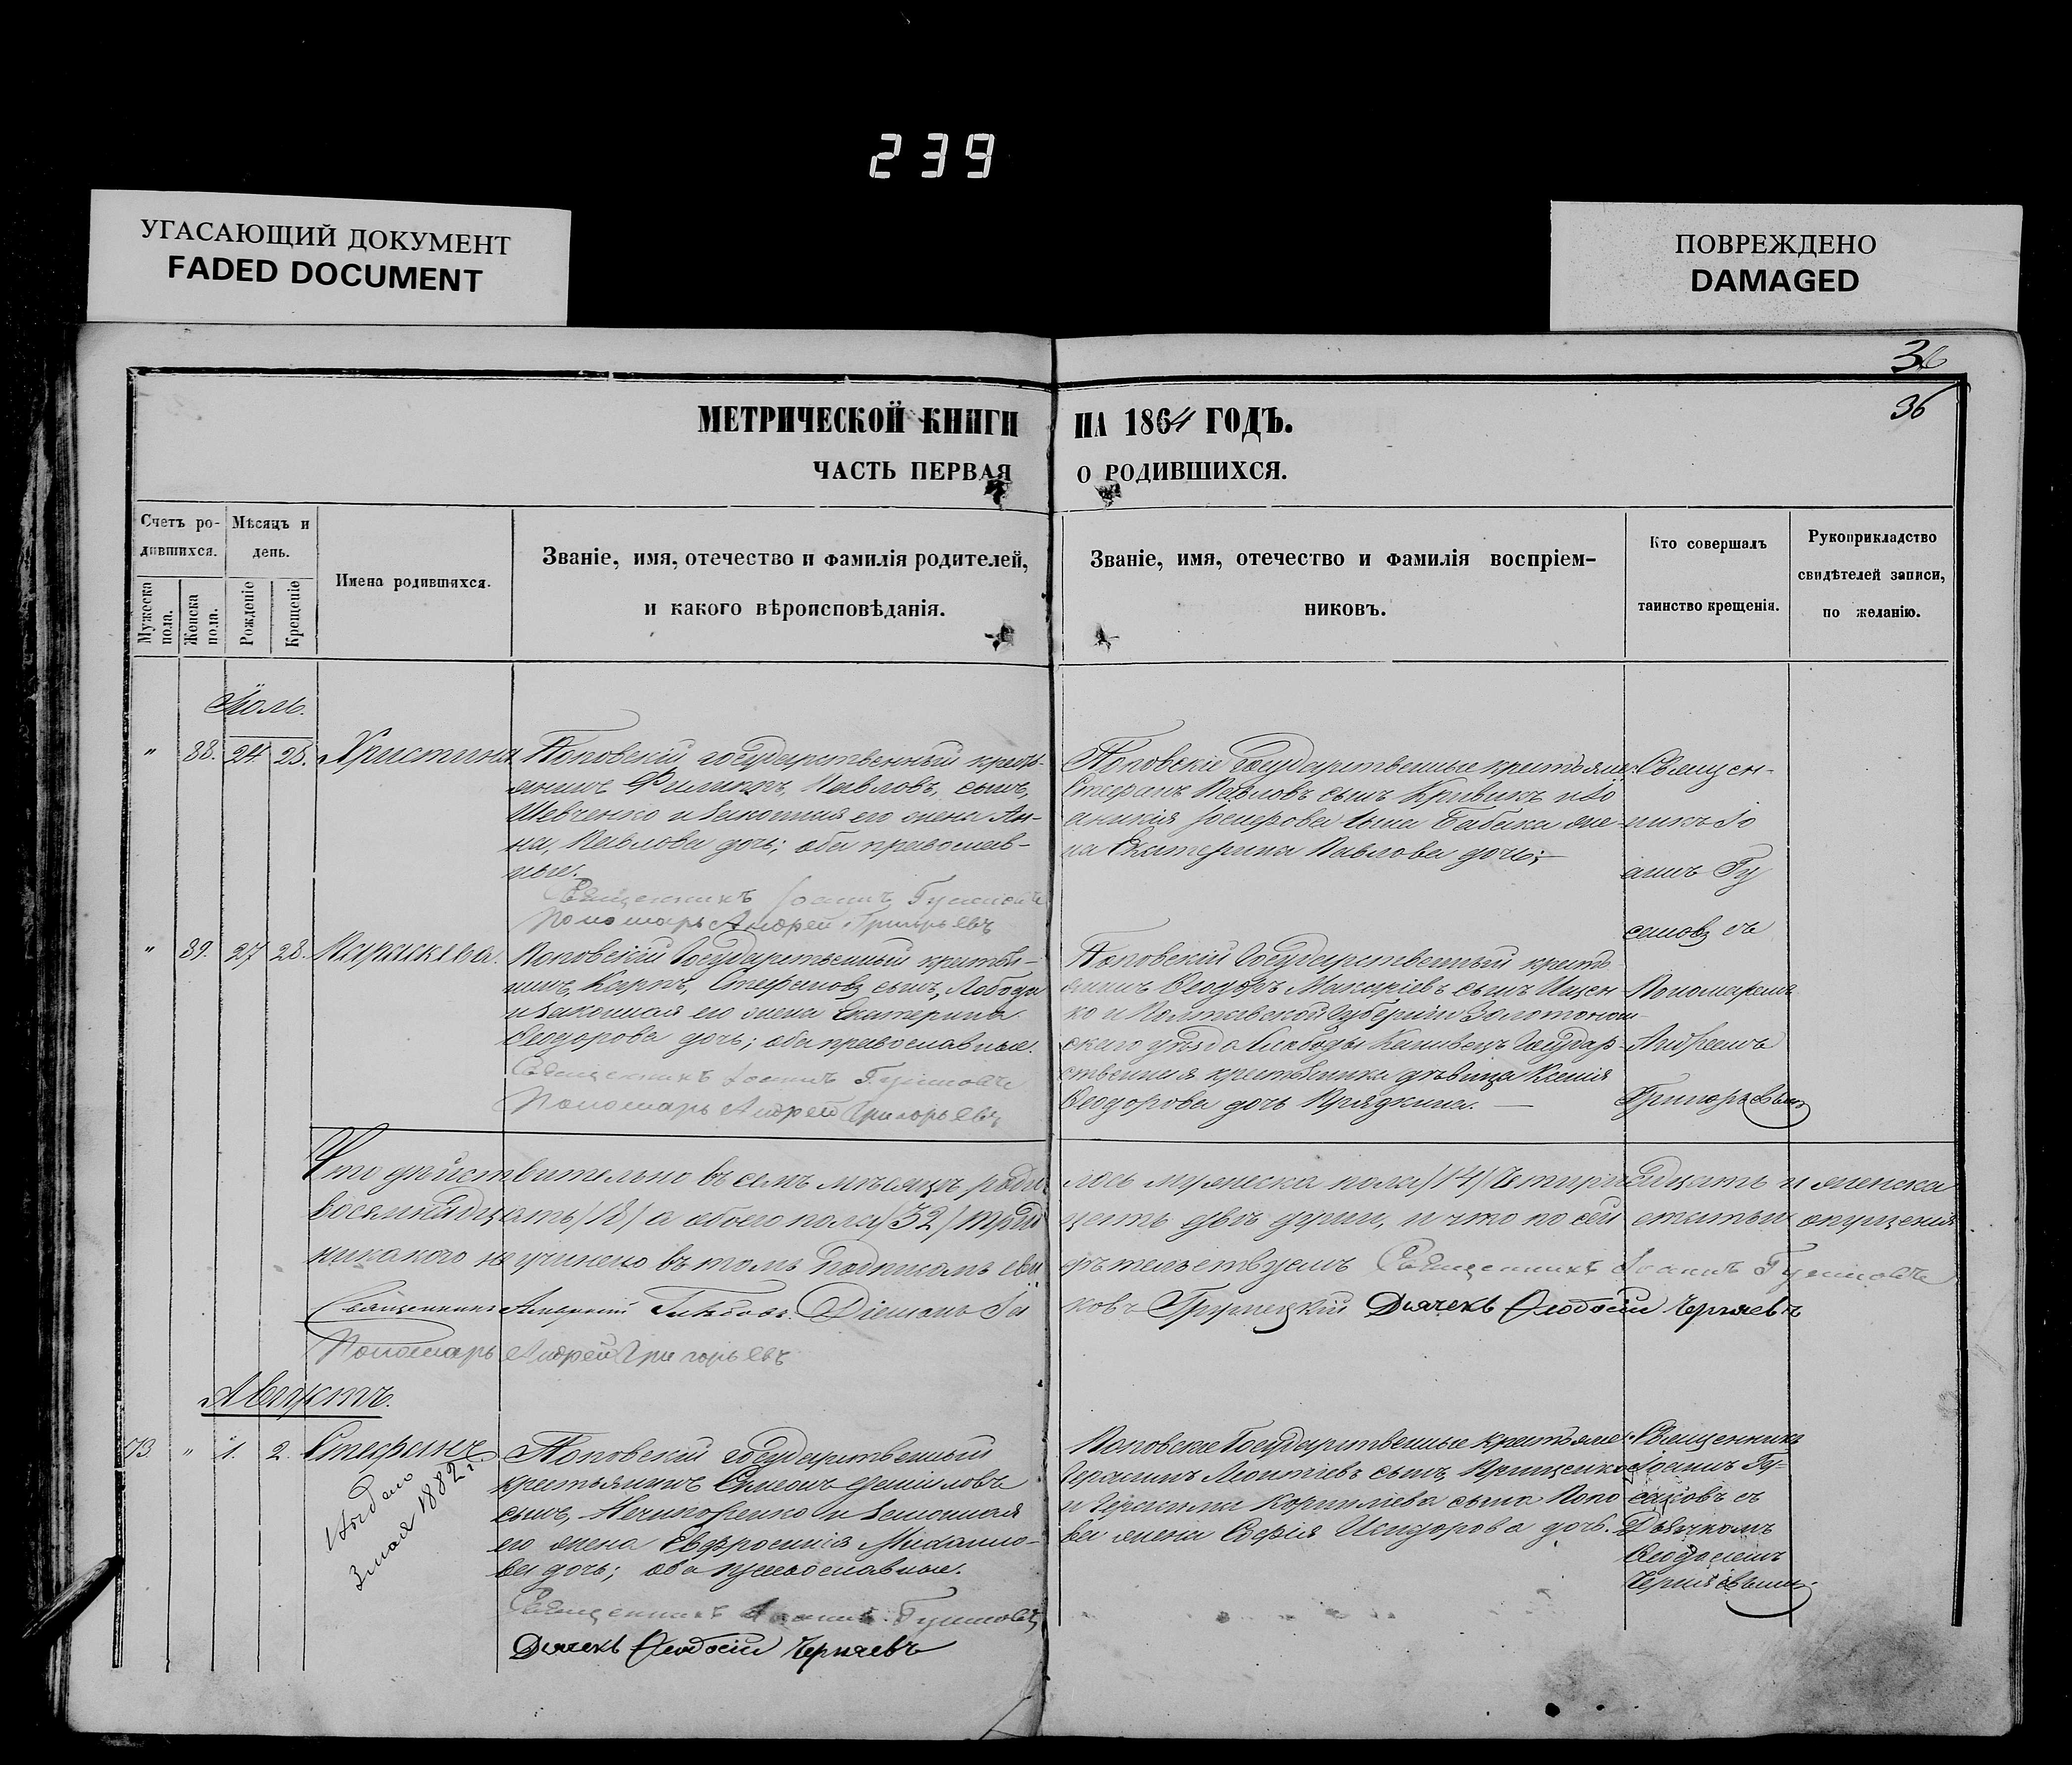 239
УГАСАЮЩИЙ ДОКУМЕНТ
FADED DOCUMENT
ПОВРЕЖДЕНО
DAMAGED
36
36
МЕТРИЧЕСКОЙ КНИГИ НА 1864 ГОДЪ.
ЧАСТЬ ПЕРВАЯ О РОДИВШИХСЯ.
Счетъ ро-
дившихся.
Мужеска пола.
Женска пола.
Мѣсяцъ и
день.
Рожденіе
Крещеніе
Имена родившихся.
Званіе, имя, отечество и фамилія родителей,
и какого вѣроисповѣданія.
Званіе, имя, отечество и фамилія воспріем-
никовъ.
Кто совершалъ
таинство крещенія.
Рукоприкладство
свидѣтелей записи,
по желанію.
Іюль.
" 88. 24 25. Христина
Поповскій государственный кресть-
янинъ Филиппъ Павловъ сынъ,
Шевченко и законная его жена Ан-
на, Павлова дочь; оба православ-
ные.
Священникъ Іоаннъ
Пономарь Андрей Григорьевъ
Поповскіе государственные крестьяне:
Стефанъ Павловъ сынъ Кривикъ и Іо
аникія Іосифова сына Бабака же-
на Екатерина Павлова дочь;
Священ-
никъ Іо
аннъ Гу
съ
" 89. 27 28. Параскева.
Поповскій Государственный крестья-
нинъ, Карпъ, Стефановъ сынъ, Лобода
и законная его жена Екатерина
Ѳеодорова дочь; оба православные.
Священникъ Іоаннъ
Пономарь Андрей Григорьевъ
Поповскій Государственный кресть-
янинъ Ѳеодоръ Макаріевъ сынъ Ищен-
ко и Полтавской Губерніи Золотонош-
скаго уѣзда Слободы Государ-
ственная крестьянка дѣвица Ксенія
Ѳеодорова дочь Прядкина.
Пономаремъ
Андреемъ
Григорьевымъ
Что дѣйствительно въ семъ мѣсяцѣ роди лось мужеска пола /14/ Четырнадцать и женска
восемнадцать /18/ а обоего пола /32/ трид цать двѣ души, и что по сей статьи опущенія
никакого не учинено въ томъ подписомъ сви дѣтельствуемъ Священникъ Іоаннъ
Священникъ Діяконъ Іа ковъ Дьячекъ Ѳеодосій Черняевъ
Пономарь Андрей Григорьевъ
Августъ.
73. " 1. 2. Стефанъ
Выдано
3 мая 1882 г.
Поповскій государственный
крестьянинъ Симеонъ Даніиловъ
сынъ, Нечипоренко и законная
его жена Евфросинія Михайло-
ва дочь; оба православные.
Священникъ Іоаннъ
Дьячекъ Ѳеодосій Черняевъ
Поповскіе Государственные крестьяне:
Герасимъ Леонтіевъ сынъ Прищенко
и Герасима Корниліева сына Попо
ва жена Софія Исидорова дочь.
Священникъ
Іоаннъ Гу-
съ
Дьячкомъ
Ѳеодосіемъ
Черняевымъ.